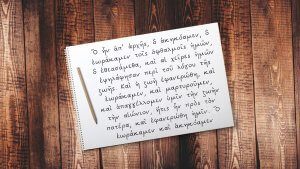 Ὃ ἦν ἀπ' ἀρχῆς, ὃ ἀκηκόαμεν, ὃ
ἑωράκαμεν τοῖς ὀφθαλμοῖς ἡμῶν,
ὃ ἐθεασάμεθα, καὶ αἱ χεῖρες ἡμῶν
ἐψηλάφησαν περὶ τοῦ λόγου τῆς
ζωῆς Καὶ ἡ ζωὴ ἐφανερώθη, καὶ
ἑωράκαμεν, καὶ μαρτυροῦμεν,
καὶ ἀπαγγέλλομεν ὑμῖν τὴν ζωὴν
τὴν αἰώνιον, ἥτις ἦν πρὸς τὸν
πατέρα, καὶ ἐφανερώθη ἡμῖν. Ὃ
ἑωράκαμεν καὶ ἀκηκόαμεν